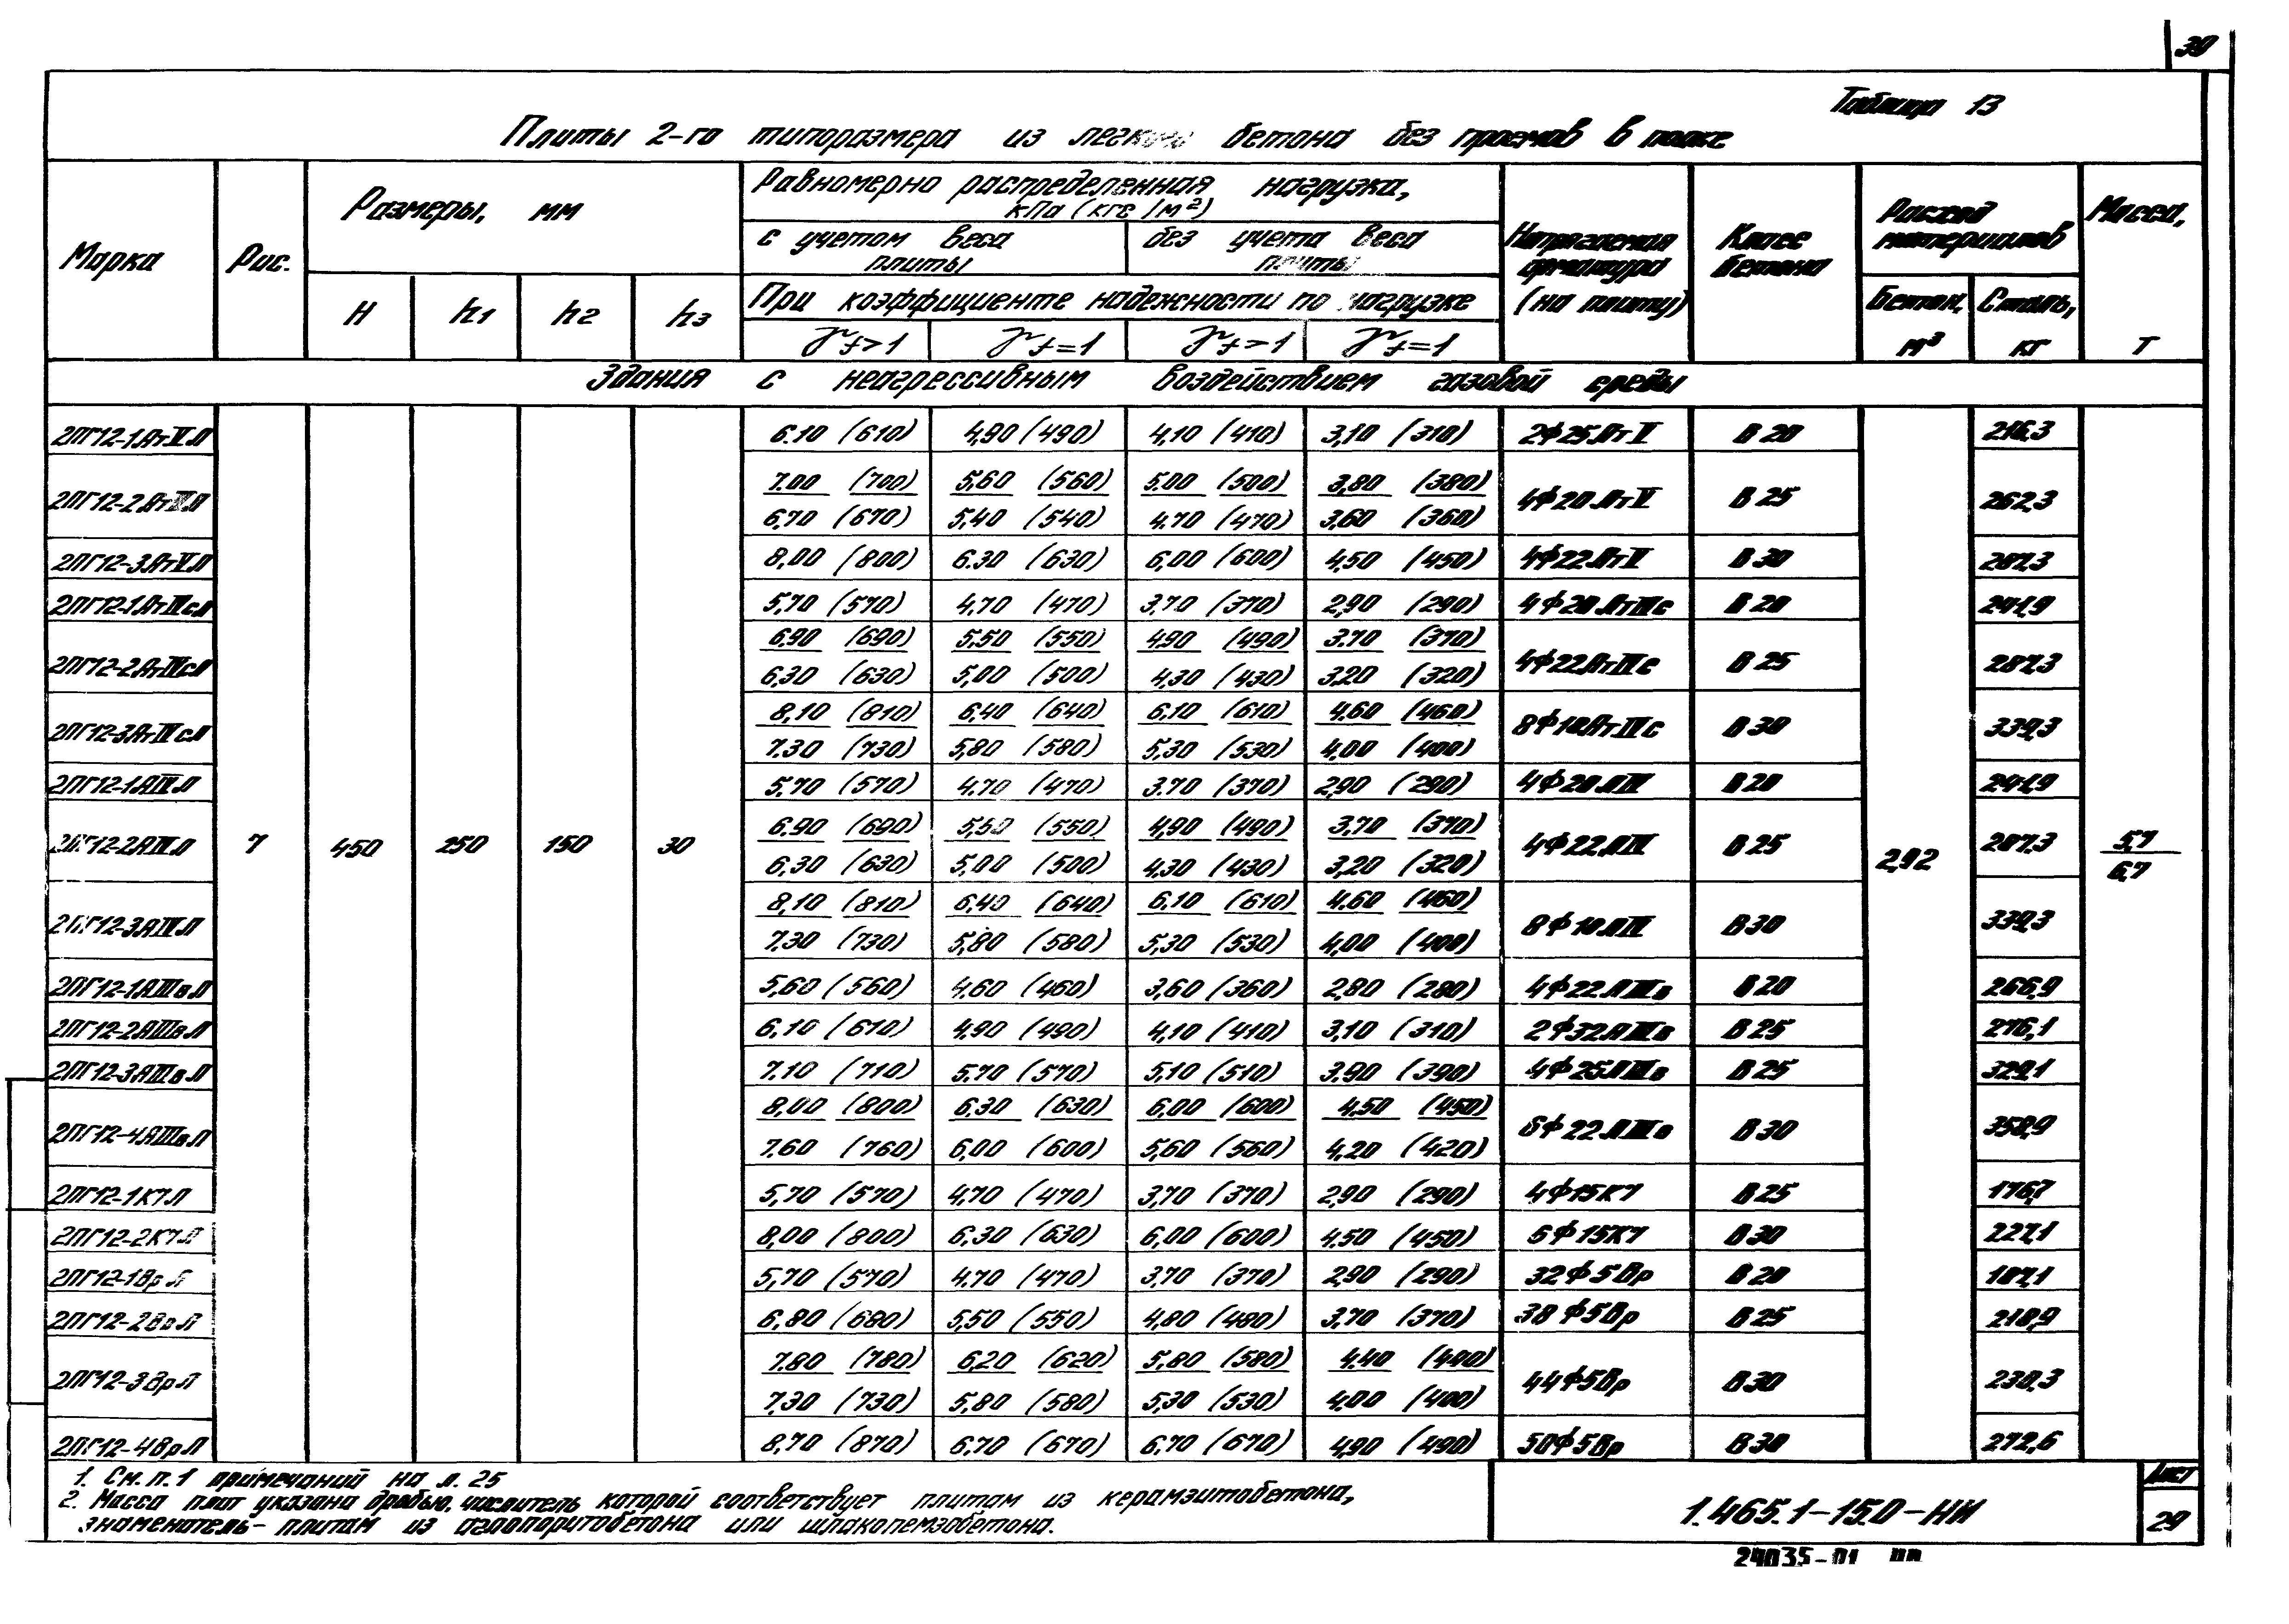 30
Таблица 13
Плиты 2-го типоразмера из легкого бетона без проемов в полке
Марка
Рис.
Размеры, мм
H
h1
h2
h3
Равномерно распределенная нагрузка,
кПа (кгс/м²)
с учетом веса
плиты
без учета веса
плиты
При коэффициенте надежности по нагрузке
γf>1 γf=1 γf>1 γf=1
Напрягаемая
арматура
(на плиту)
Класс
бетона
Расход
материалов
Бетон,
м³
Сталь,
кг
Масса,
т
Здания с неагрессивным воздействием газовой среды
2ПГ12-1АтVЛ 6.10 (610) 4,90 (490) 4,10 (410) 3,10 (310) 2Ф25АтV В20 216,3
7.00 (700) 5,60 (560) 5.00 (500) 3,80 (380)
2ПГ12-2АтVЛ 4Ф20АтV В25 262,3
6,70 (670) 5,40 (540) 4.70 (470) 3,60 (360)
2ПГ12-3АтVЛ 8,00 (800) 6.30 (630) 6,00 (600) 4,50 (450) 4Ф22АтV В30 287,3
2ПГ12-1АтIVсЛ 5,70 (570) 4,70 (470) 3,70 (370) 2,90 (290) 4Ф20АтIVс В20 241,9
6.90 (690) 5,50 (550) 4,90 (490) 3.70 (370)
2ПГ12-2АтIVсЛ 4Ф22АтIVс В25 287,3
6,30 (630) 5,00 (500) 4,30 (430) 3,20 (320)
8,10 (810) 6,40 (640) 6,10 (610) 4,60 (460)
2ПГ12-3АтIVсЛ 8Ф18АтIVс В30 339,3
7.30 (730) 5,80 (580) 5,30 (530) 4,00 (400)
2ПГ12-1АIVЛ 5.70 (570) 4.70 (470) 3.70 (370) 2,90 (290) 4Ф20АIV В20 241,9
6.90 (690) 5,50 (550) 4,90 (490) 3,70 (370)
2ПГ12-2АIVЛ 7 450 250 150 30 4Ф22АIV В25 2,92 287,3 5,7
6,30 (630) 5,00 (500) 4,30 (430) 3,20 (320) 6,7
8,10 (810) 6,40 (640) 6.10 (610) 4.60 (460)
2ПГ12-3АIVЛ 8Ф18АIV В30 339,3
7.30 (730) 5,80 (580) 5,30 (530) 4,00 (400)
2ПГ12-1АIIIвЛ 5,60 (560) 4,60 (460) 3,60 (360) 2,80 (280) 4Ф22АIIIв В20 266,9
2ПГ12-2АIIIвЛ 6,10 (610) 4,90 (490) 4,10 (410) 3,10 (310) 2Ф32АIIIв В25 276,1
2ПГ12-3АIIIвЛ 7.10 (710) 5.70 (570) 5,10 (510) 3,90 (390) 4Ф25АIIIв В25 329,1
8,00 (800) 6,30 (630) 6,00 (600) 4,50 (450)
2ПГ12-4АIIIвЛ 6Ф22АIIIв В30 358,9
7.60 (760) 6,00 (600) 5,60 (560) 4,20 (420)
2ПГ12-1К7Л 5,70 (570) 4,70 (470) 3,70 (370) 2,90 (290) 4Ф15К7 В25 176,7
2ПГ12-2К7Л 8,00 (800) 6,30 (630) 6,00 (600) 4,50 (450) 6Ф15К7 В30 227,1
2ПГ12-1ВрЛ 5,70 (570) 4.70 (470) 3,70 (370) 2,90 (290) 32Ф5Вр В20 187,1
2ПГ12-2ВрЛ 6,80 (680) 5,50 (550) 4,80 (480) 3,70 (370) 38Ф5Вр В25 218,9
7.80 (780) 6,20 (620) 5,80 (580) 4,40 (440)
2ПГ12-3ВрЛ 44Ф5Вр В30 238,3
7,30 (730) 5,80 (580) 5,30 (530) 4,00 (400)
2ПГ12-4ВрЛ 8,70 (870) 6.70 (670) 6,70 (670) 4,90 (490) 50Ф5Вр В30 272,6
1. См. п.1 примечаний на л. 25
2. Масса плит указана дробью, числитель которой соответствует плитам из керамзитобетона,
знаменатель- плитам из аглопоритобетона или шлакопемзобетона.
1.465.1-15.0-НИ
Лист
29
24035-01